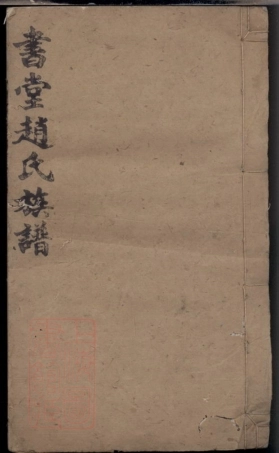 書堂趙氏族譜